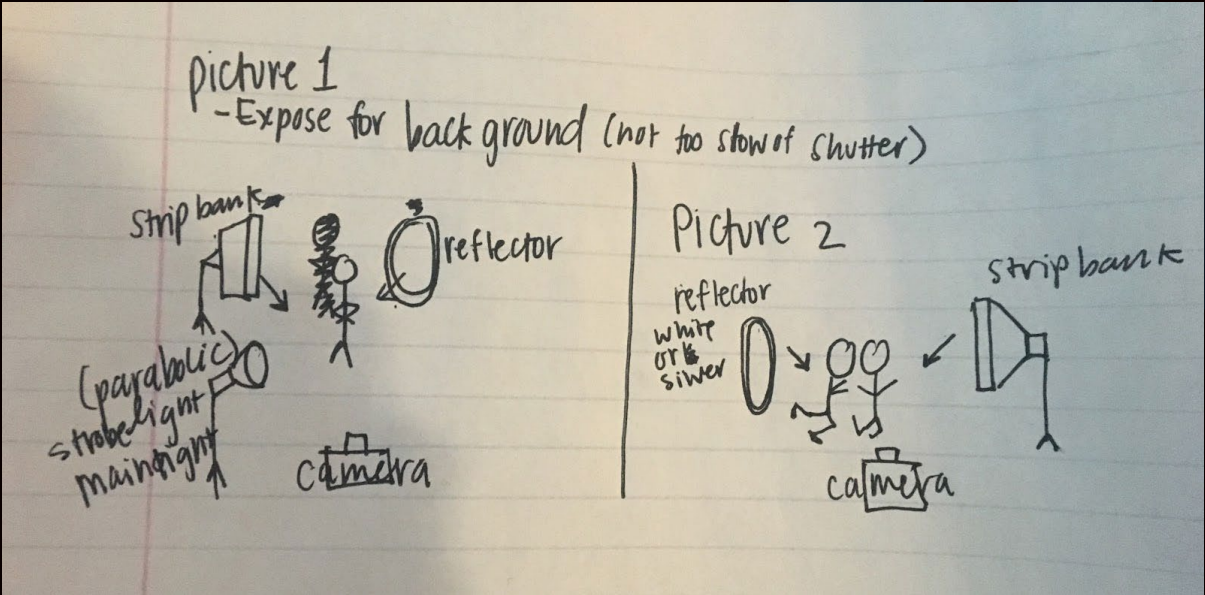 picture 1
-Expose for background (not too slow of shutter)
strip bank
reflector
(parabolic)
strobe light
main light
camera
Picture 2
strip bank
reflector
white
or
silver
camera